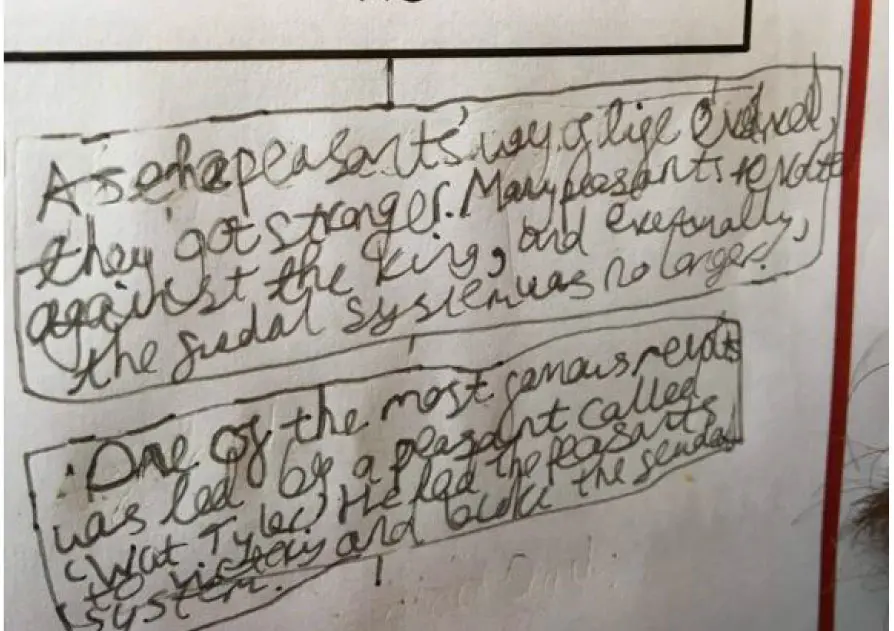 As the peasants' way of life evolved,
they got stronger. Many peasants revolted
against the king, and eventually,
the fuedal system was no longer.
One of the most famous revolts
was led by a peasant called
(Wat Tyler) He led the peasants
to victory and broke the feudal
system.